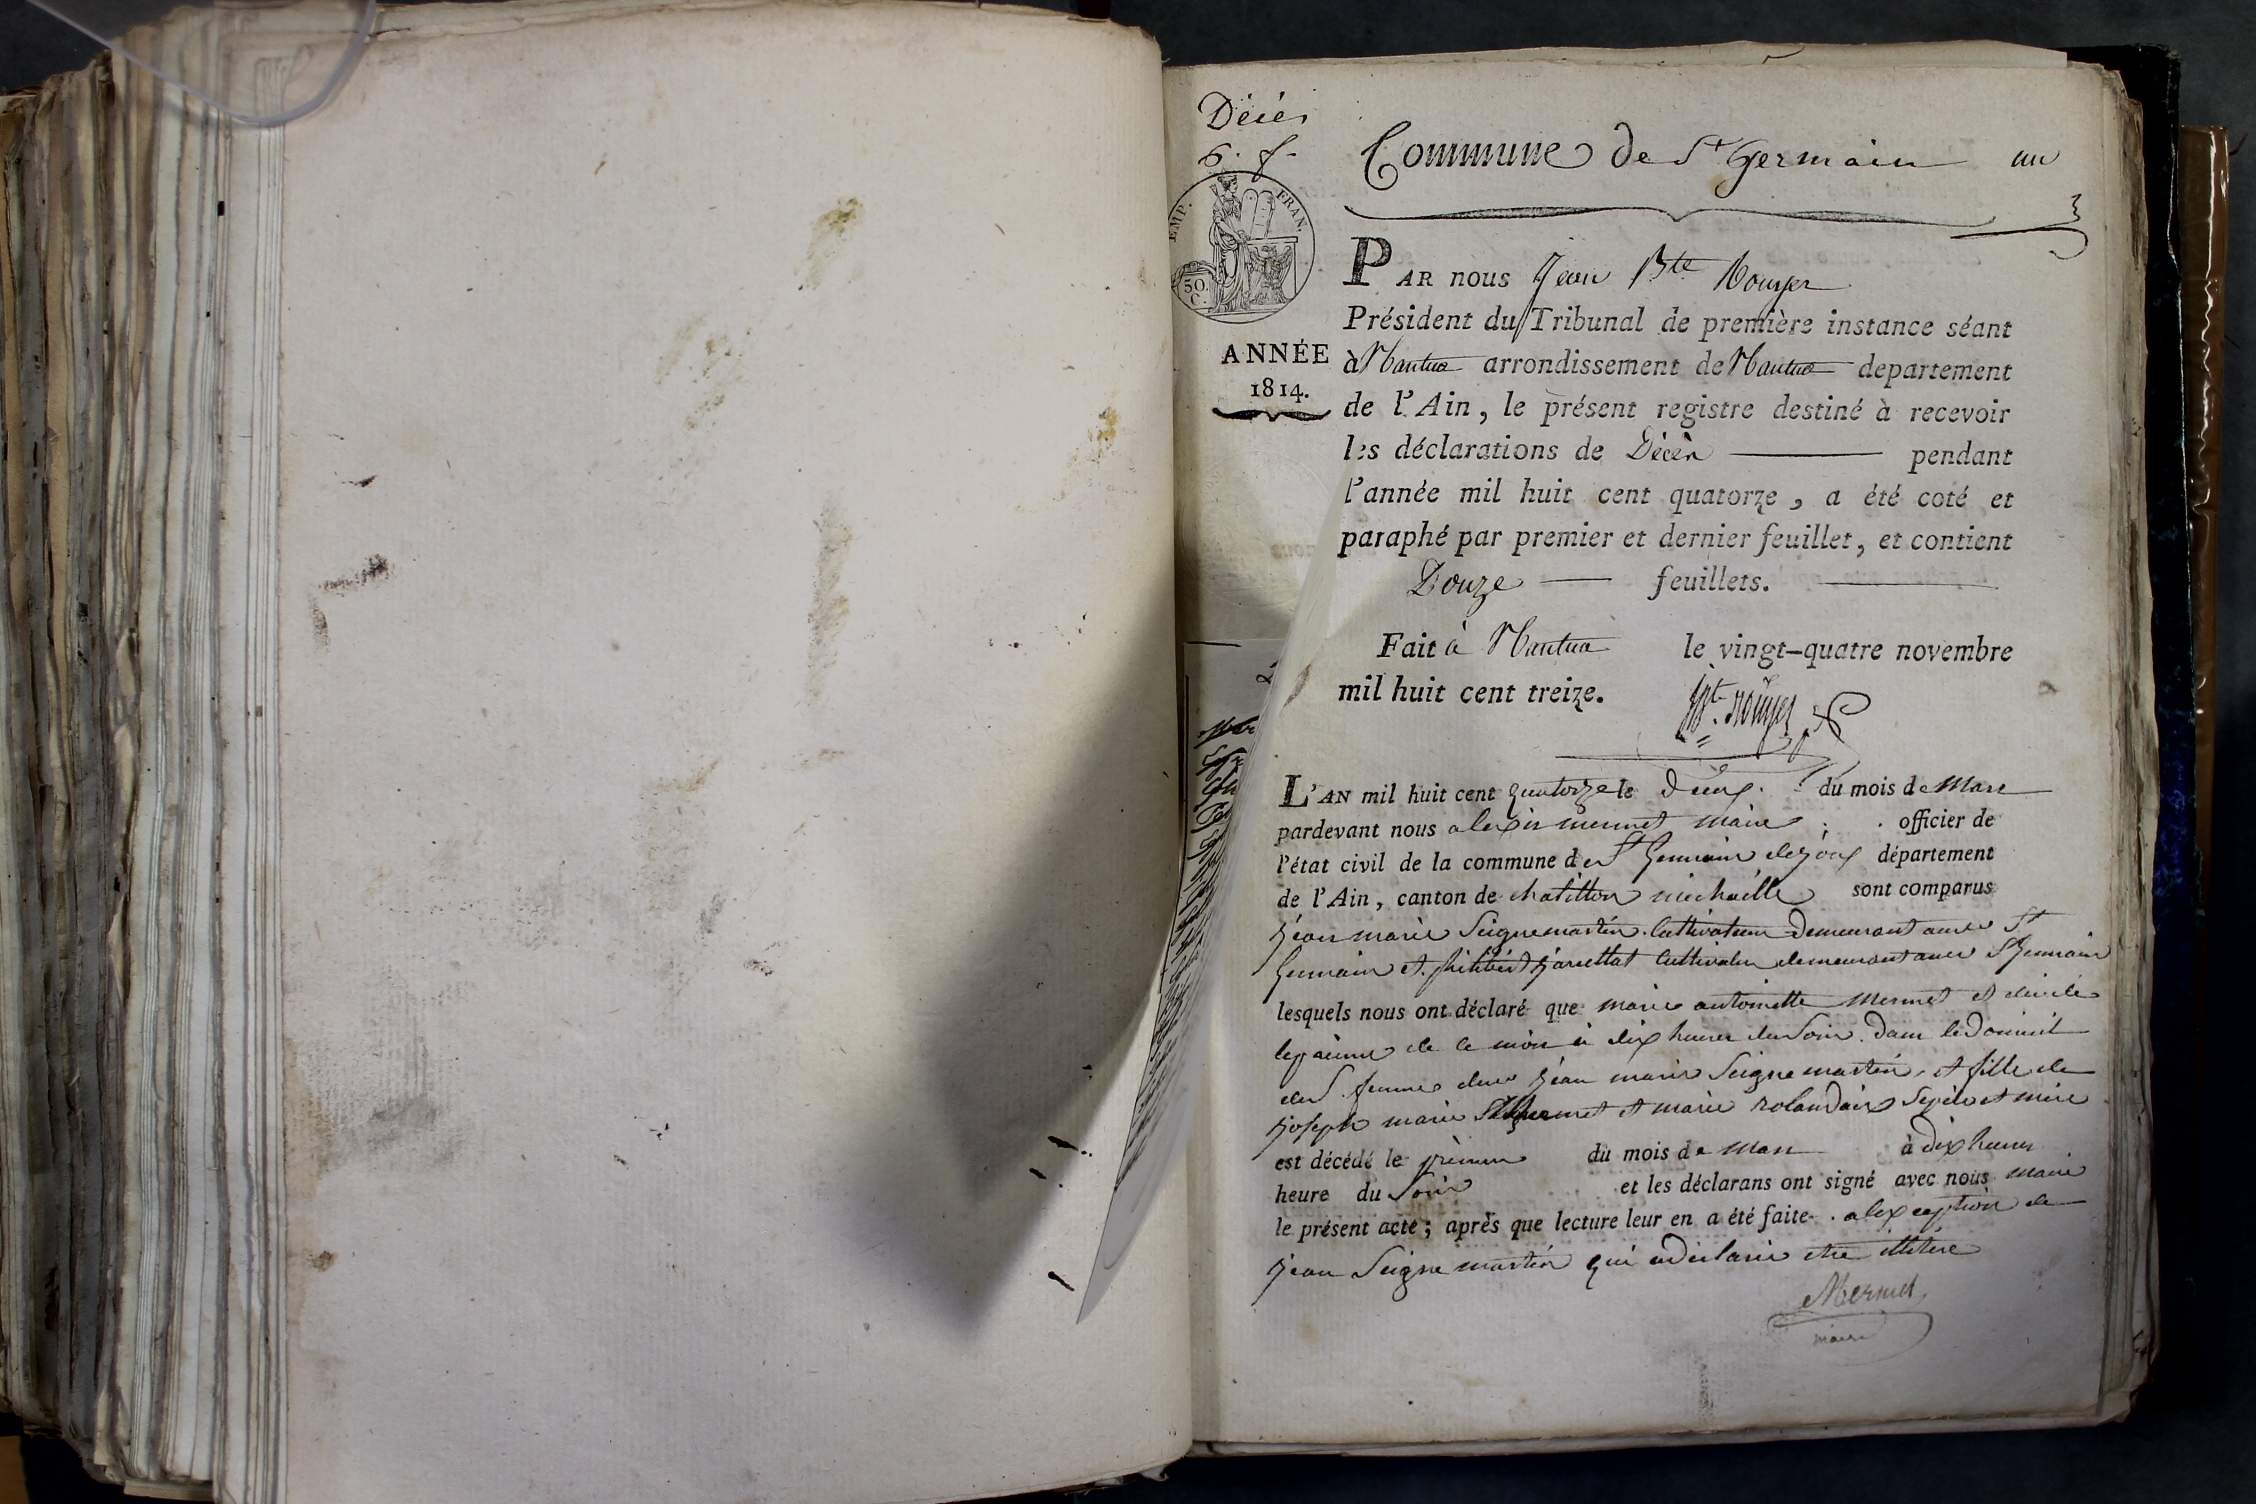 Décès
6. f.
Commune de St Germain un
EMP. FRAN.
50.
C.
ANNÉE
1814.
PAR nous Jean Bte Rouyer
Président du Tribunal de première instance séant
à Nantua arrondissement de Nantua departement
de l'Ain, le présent registre destiné à recevoir
les déclarations de Décès pendant
l'année mil huit cent quatorze, a été coté et
paraphé par premier et dernier feuillet, et contient
Douze feuillets.
Fait à Nantua le vingt-quatre novembre
mil huit cent treize.
Bte Rouyer
L'AN mil huit cent quatorze le deux du mois de Mars
pardevant nous alexis mermet maire officier de
l'état civil de la commune de St Germain de joux département
de l'Ain, canton de chatillon michaille sont comparus
jean marie Seignemartin Cultivateur Demeurant St
Germain et philibert Cultivateur demeurant St Germain
lesquels nous ont déclaré que marie antoinette Mermet décédé
de ce mois à dix heures du Soir dans le Domicil
femme jean marie Seigne martin et fille de
joseph marie mermet et marie rolandaix père et mère
est décédé le du mois de Mars à dix heures
heure du Soir et les déclarans ont signé avec nous maire
le présent acte; après que lecture leur en a été faite alexception de
jean Seigne martin qui a declaré etre
Mermet
maire